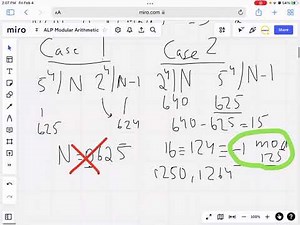 2:07 PM Fri Feb 4
miro.com
miro ALP Modular Arithmetic
Case 1
5⁴|N 2⁴|N-1
625 624
N≡0625
Case 2
2⁴|N 5⁴|N-1
640 625
640-625=15
16≡124≡-1 mod 125
1250, 1264